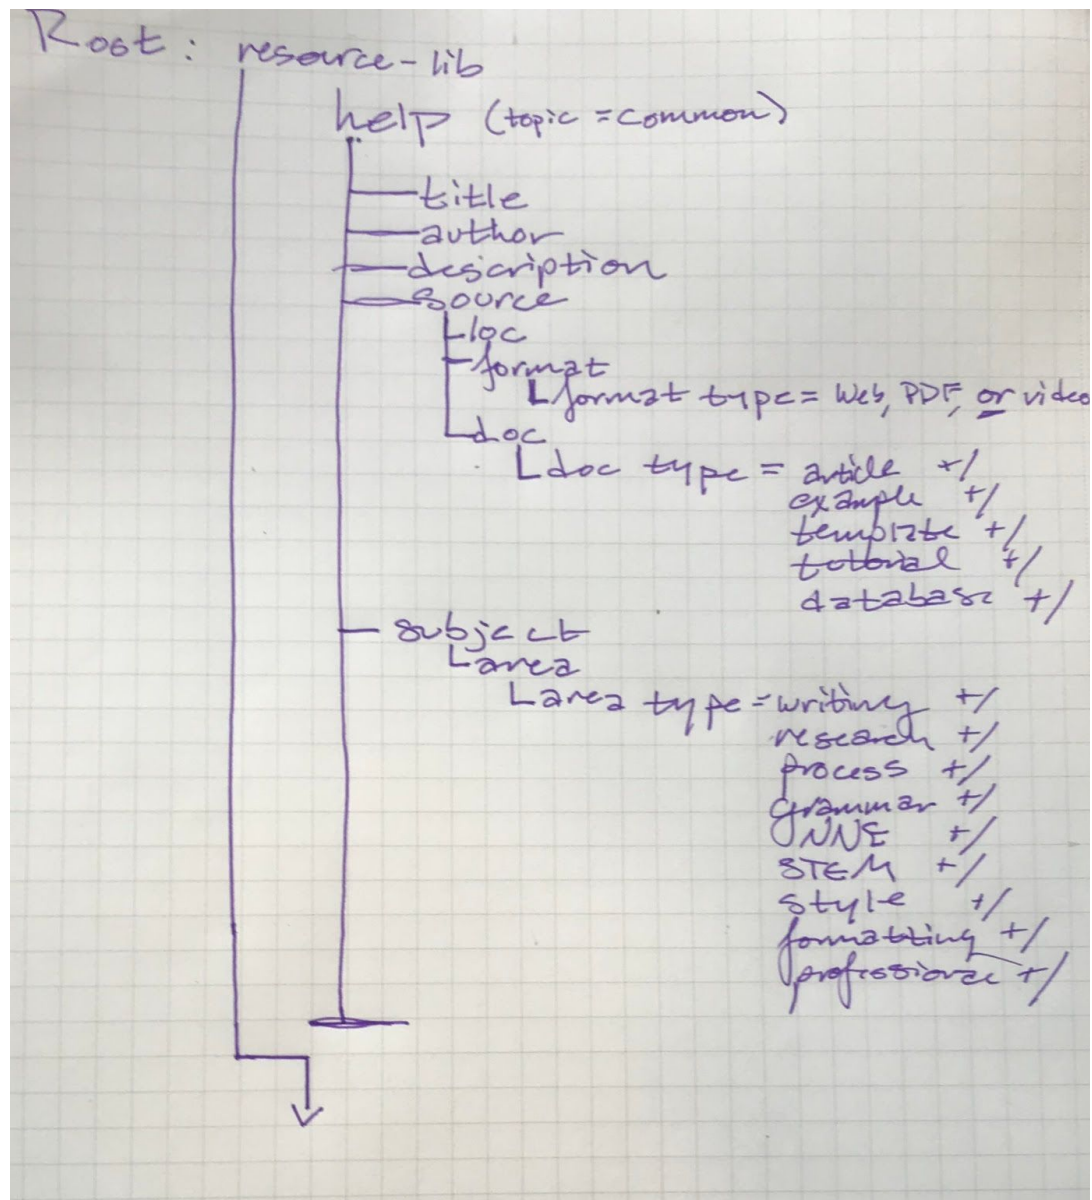 Root: resource-lib
help (topic = common)
title
author
description
source
loc
format
format type = Web, PDF, or video
doc
doc type = article +/
example +/
template +/
tutorial +/
database +/
subject
area
area type = writing +/
research +/
process +/
grammar +/
NNE +/
STEM +/
style +/
formatting +/
professional +/